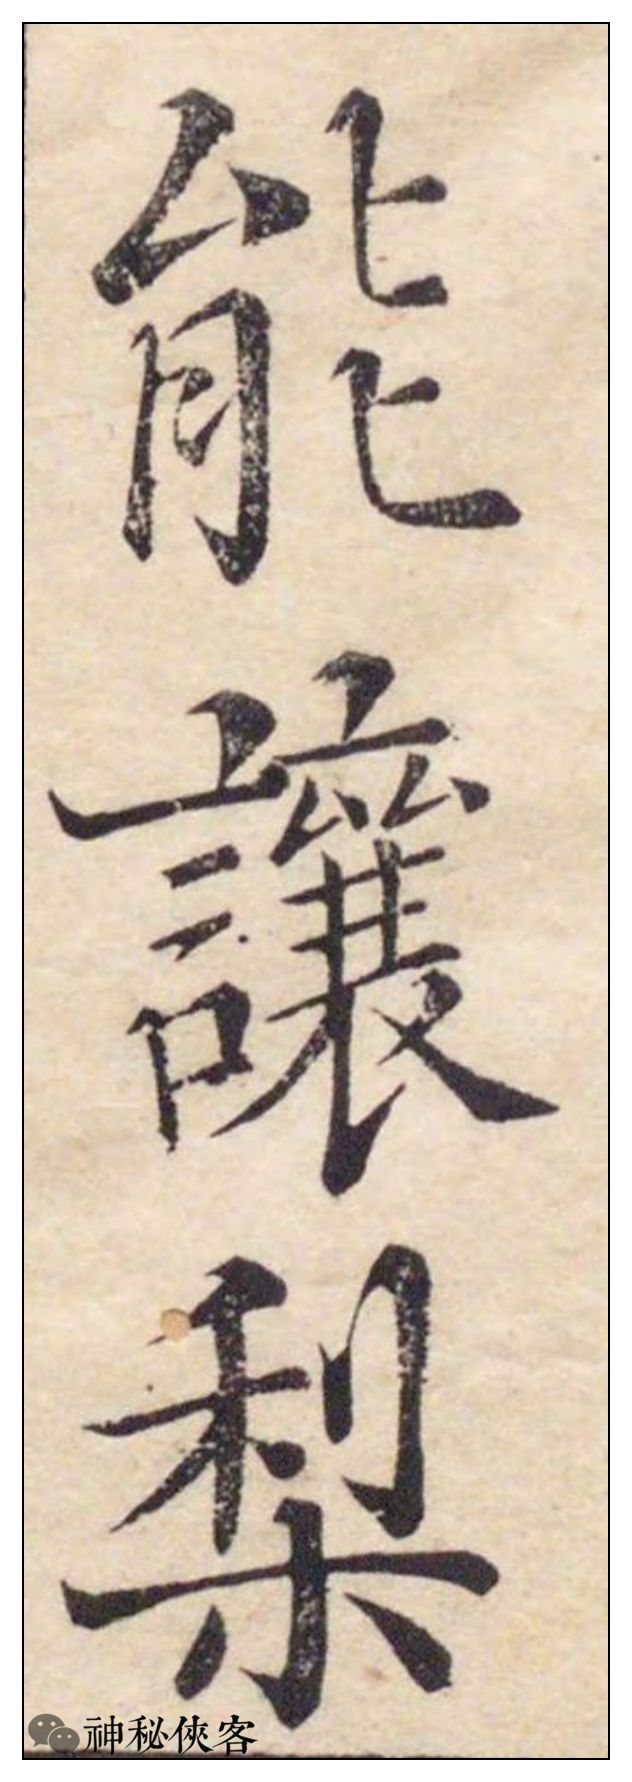 能讓梨
神秘俠客